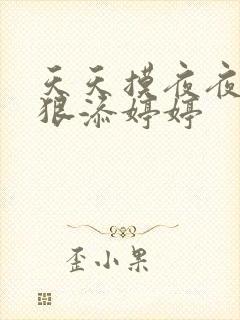 天天摸夜夜
狠添婷婷
歪小果